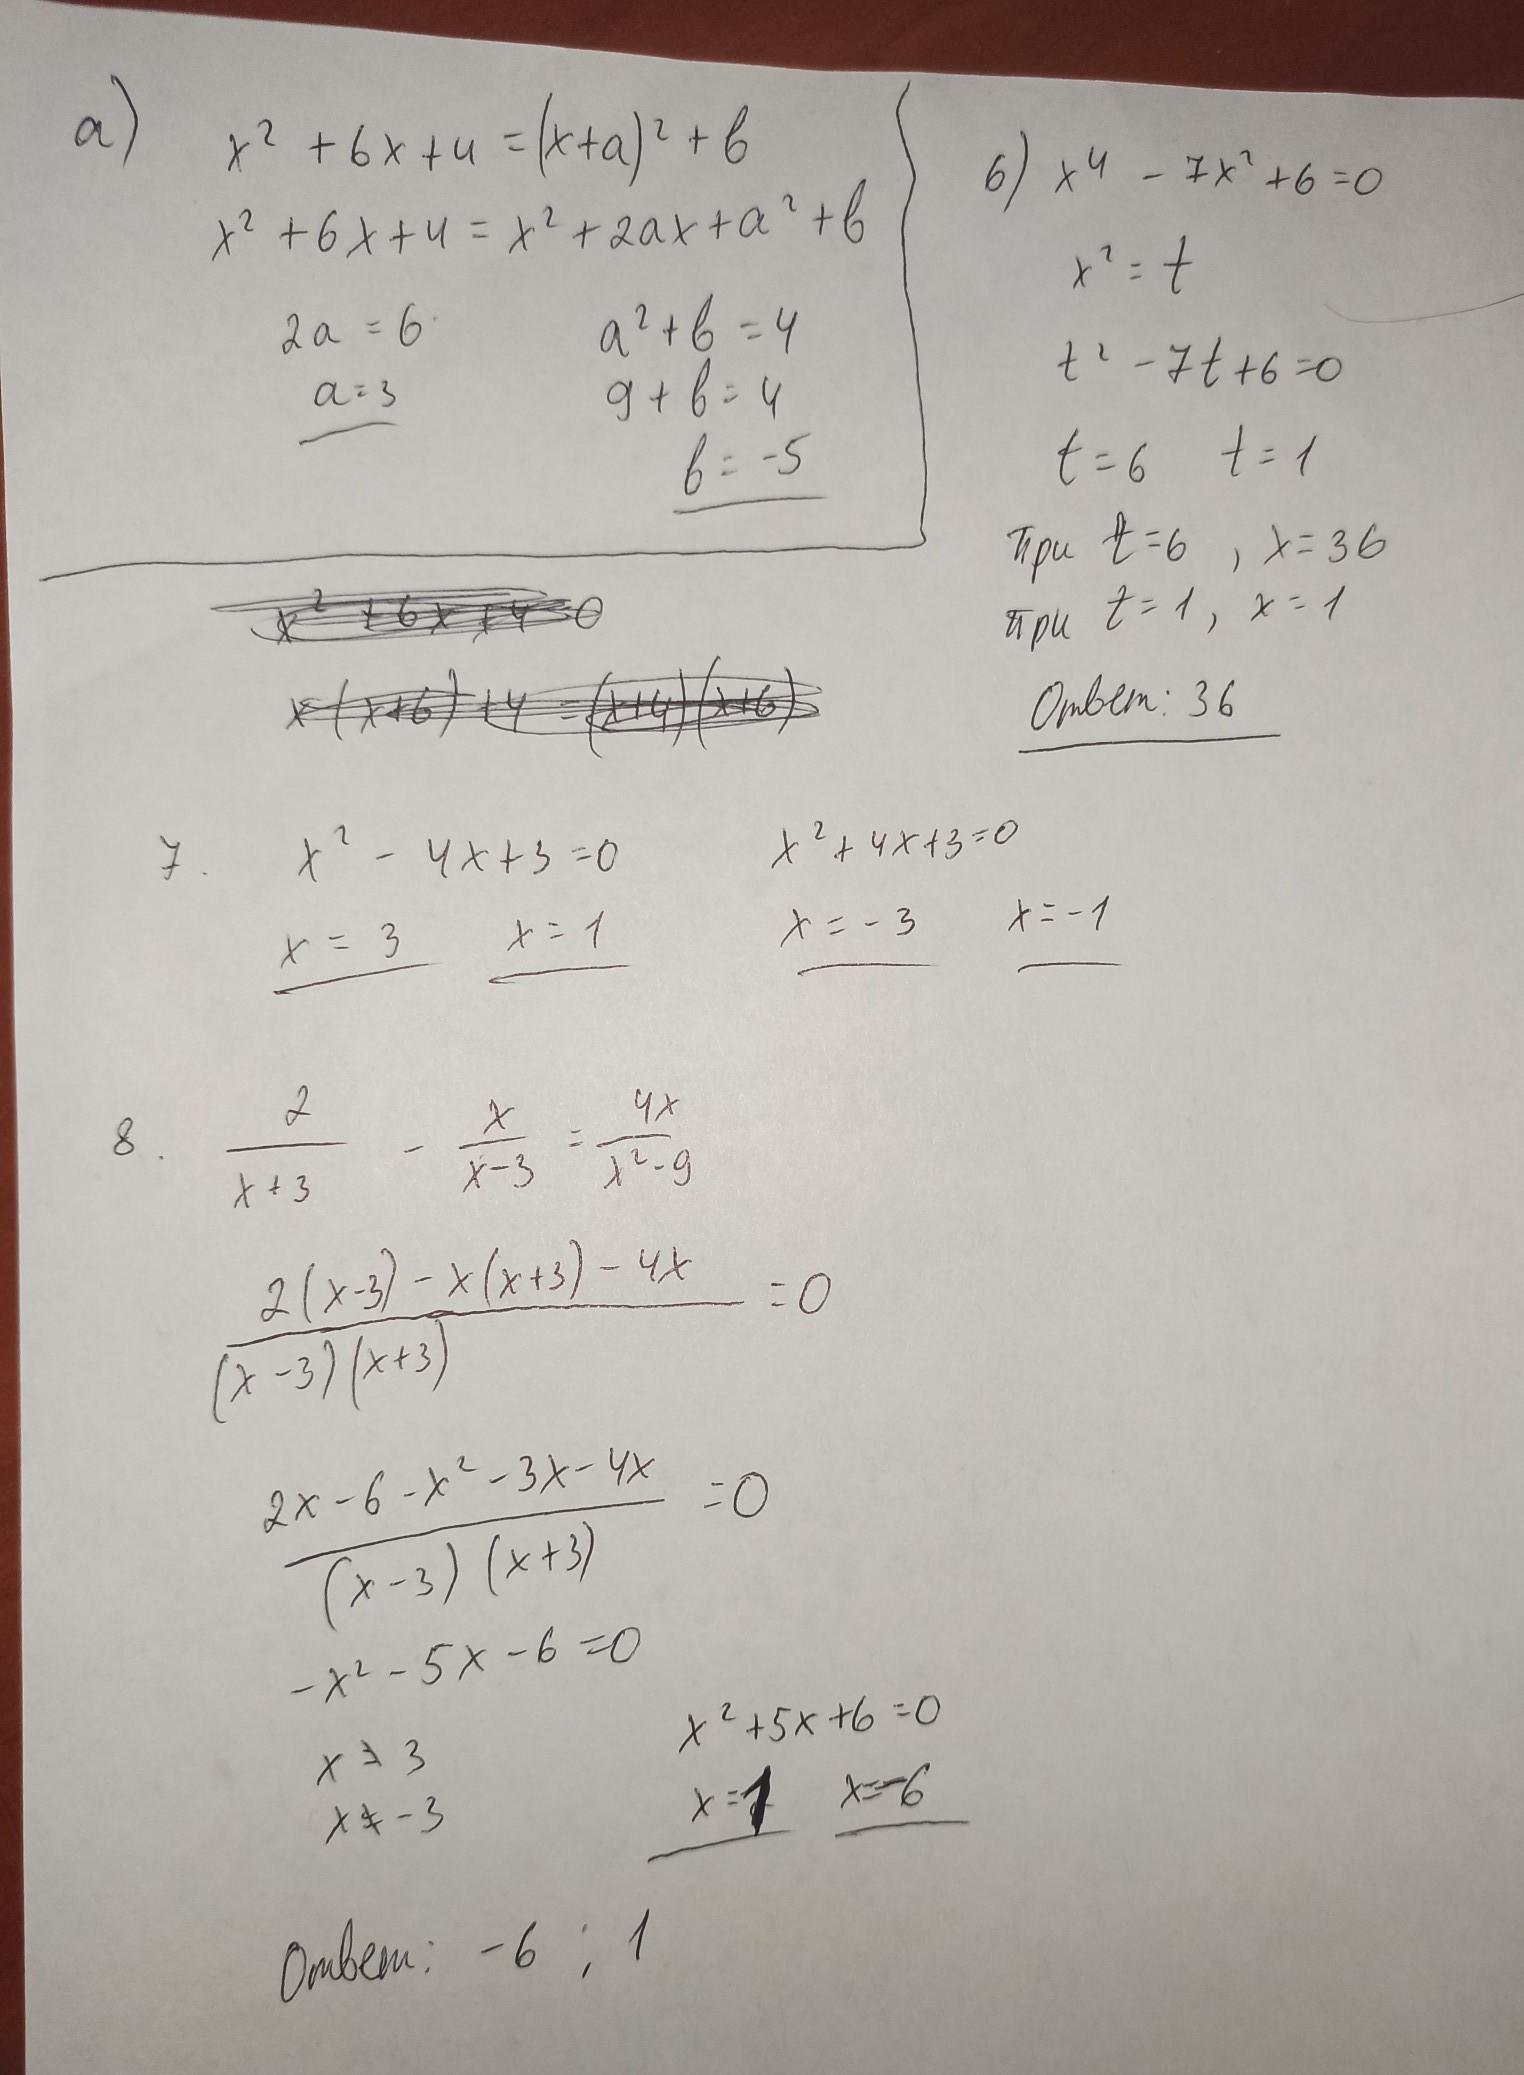 а) x² + 6x + 4 = (x+a)² + b
x² + 6x + 4 = x² + 2ax + a² + b
2a = 6 a² + b = 4
a = 3 9 + b = 4
b = -5
x² + 6x + 4 = 0
x(x+6) + 4 = (x+4)(x+6)
б) x⁴ - 7x² + 6 = 0
x² = t
t² - 7t + 6 = 0
t = 6 t = 1
при t = 6, x = 36
при t = 1, x = 1
Ответ: 36
7. x² - 4x + 3 = 0 x² + 4x + 3 = 0
x = 3 x = 1 x = -3 x = -1
8. 2/(x+3) - x/(x-3) = 4x/(x²-9)
(2(x-3) - x(x+3) - 4x)/((x-3)(x+3)) = 0
(2x - 6 - x² - 3x - 4x)/((x-3)(x+3)) = 0
-x² - 5x - 6 = 0
x ≠ 3 x² + 5x + 6 = 0
x ≠ -3 x = 1 x = -6
Ответ: -6 ; 1